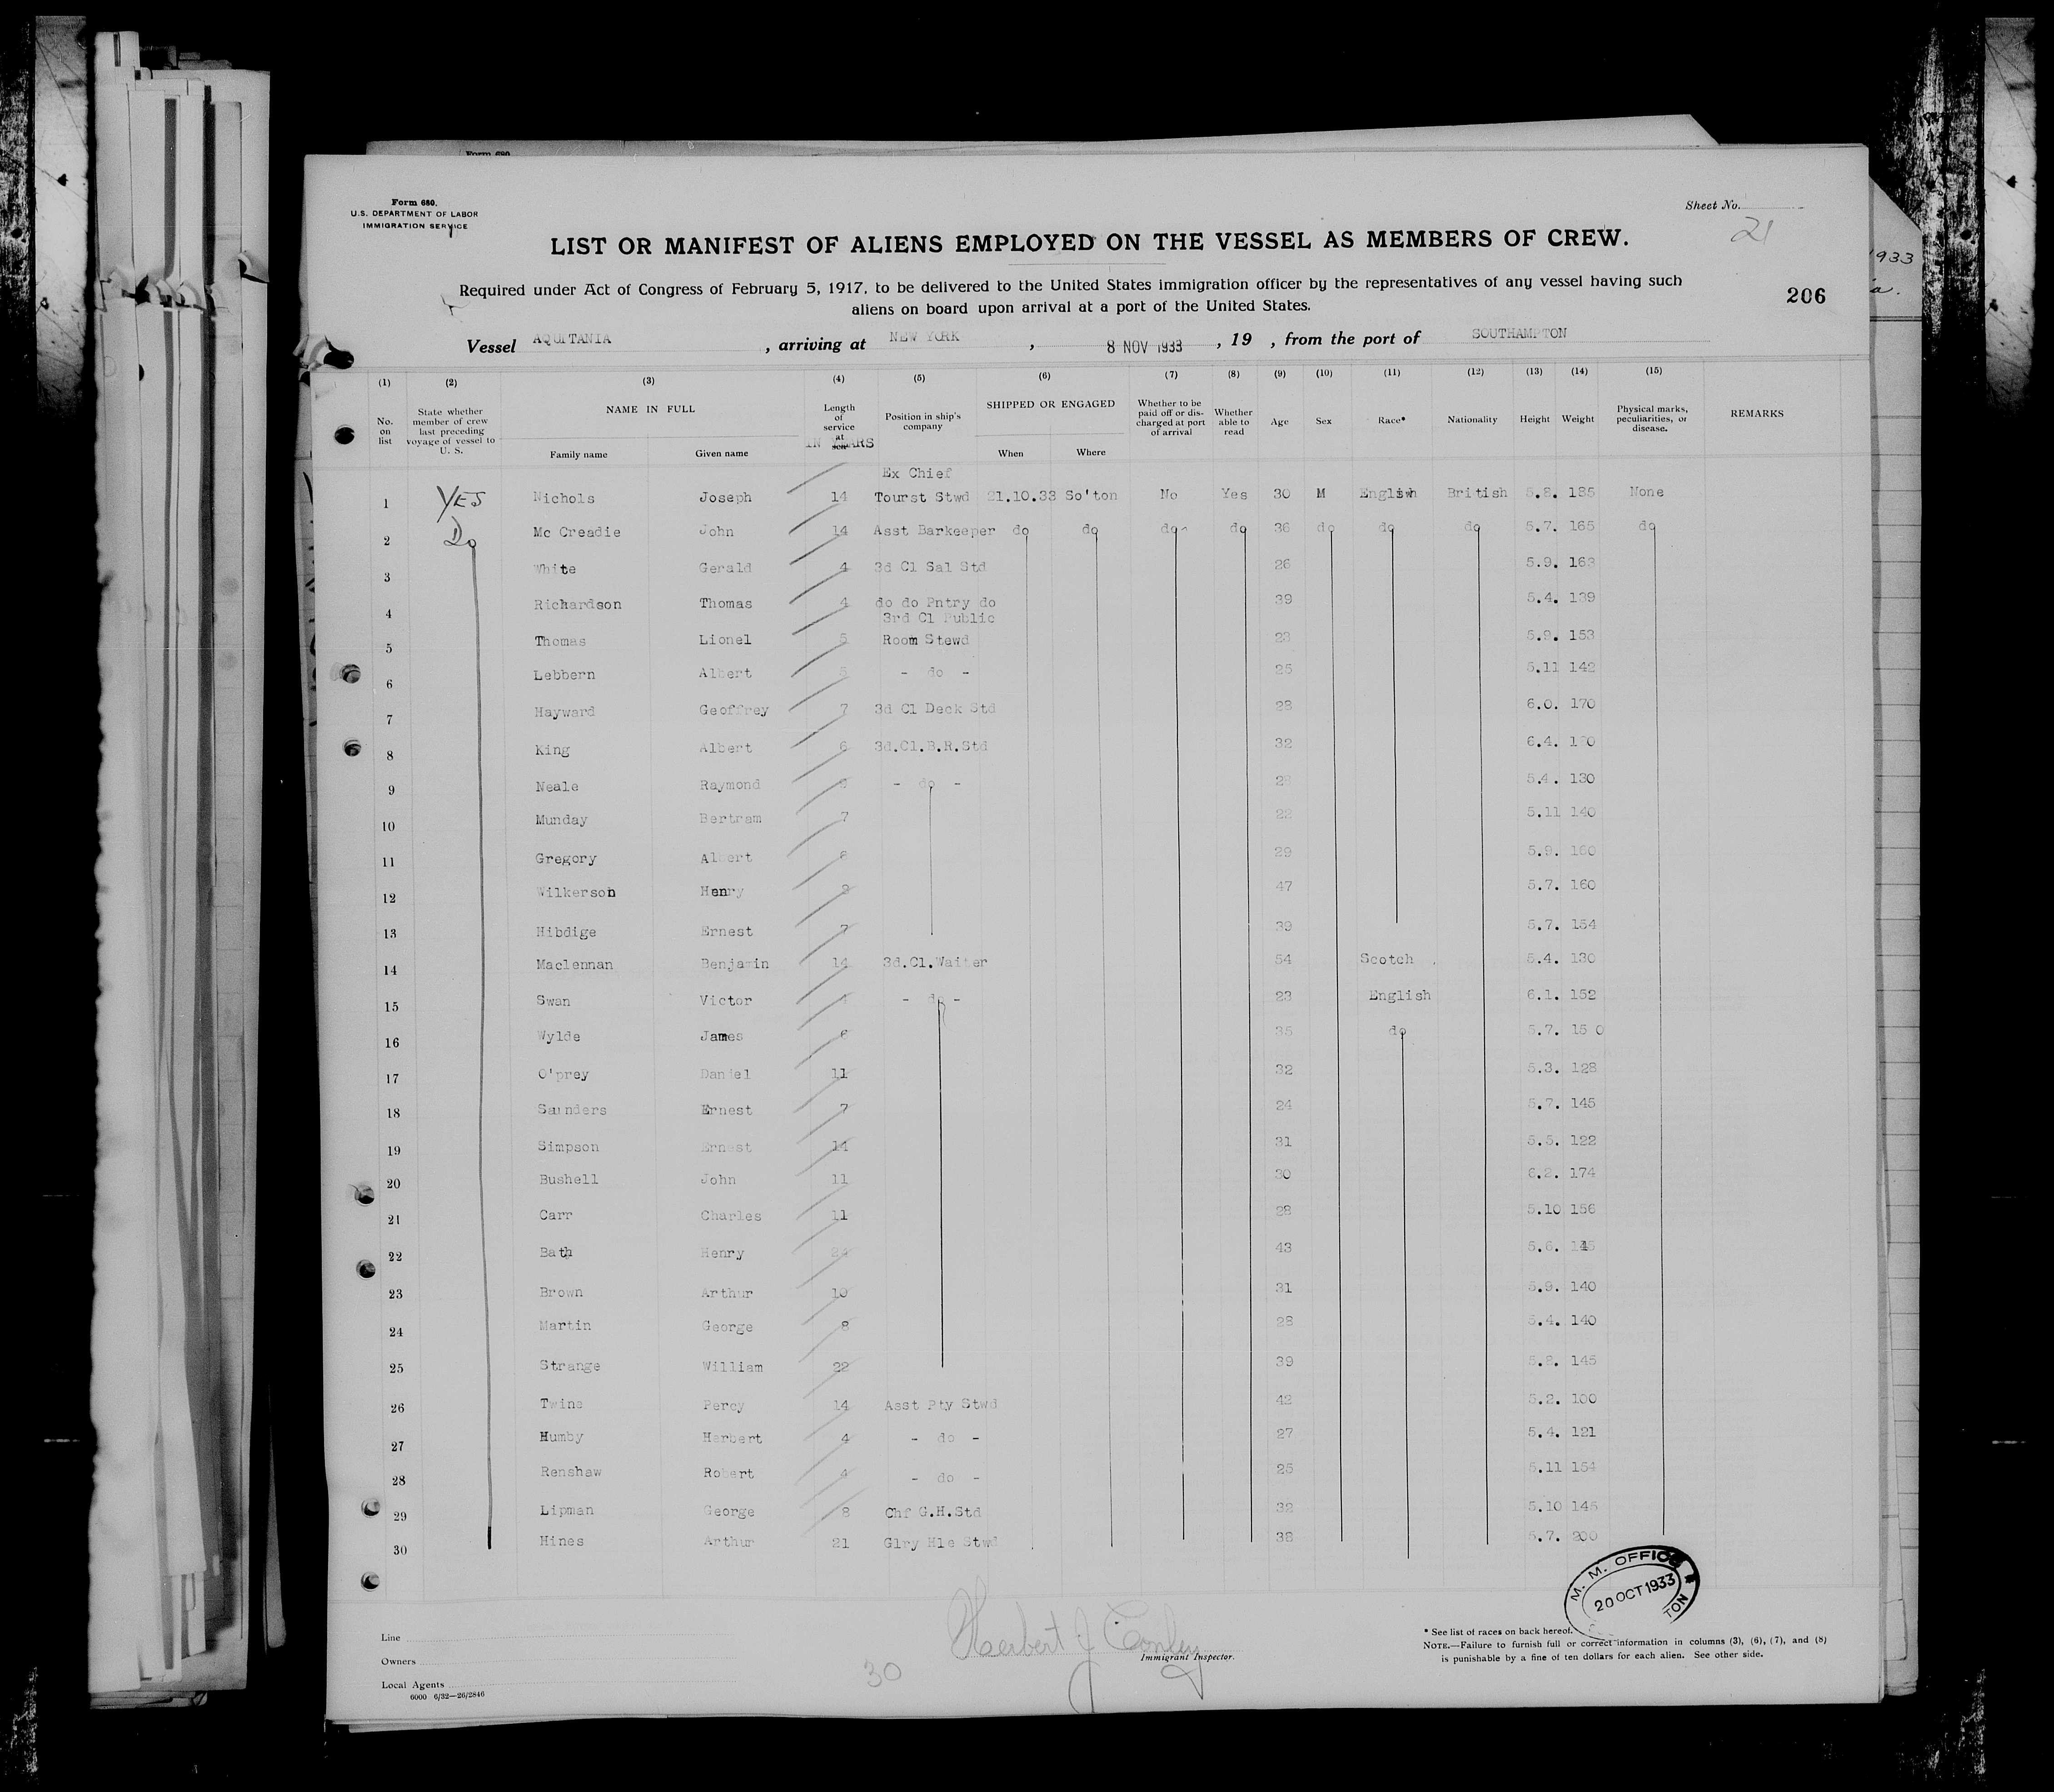 Form 680.
U.S. DEPARTMENT OF LABOR
IMMIGRATION SERVICE
Sheet No.
21
LIST OR MANIFEST OF ALIENS EMPLOYED ON THE VESSEL AS MEMBERS OF CREW.
Required under Act of Congress of February 5, 1917, to be delivered to the United States immigration officer by the representatives of any vessel having such
aliens on board upon arrival at a port of the United States.
206
Vessel AQUITANIA, arriving at NEW YORK, 8 NOV 1933, 19 , from the port of SOUTHAMPTON
(1) (2) (3) (4) (5) (6) (7) (8) (9) (10) (11) (12) (13) (14) (15)
No. on list State whether member of crew last preceding voyage of vessel to U. S. NAME IN FULL Family name Given name Length of service at sea IN YEARS Position in ship's company SHIPPED OR ENGAGED When Where Whether to be paid off or discharged at port of arrival Whether able to read Age Sex Race* Nationality Height Weight Physical marks, peculiarities, or disease. REMARKS
Ex Chief
1 YES Nichols Joseph 14 Tourst Stwd 21.10.33 So'ton No Yes 30 M English British 5.8. 135 None
2 Do Mc Creadie John 14 Asst Barkeeper do do do do 36 do do do 5.7. 165 do
3 White Gerald 4 3d Cl Sal Std 26 5.9. 163
4 Richardson Thomas 4 do do Pntry do 39 5.4. 139
3rd Cl Public
5 Thomas Lionel 5 Room Stewd 23 5.9. 153
6 Lebbern Albert 5 - do - 25 5.11 142
7 Hayward Geoffrey 7 3d Cl Deck Std 28 6.0. 170
8 King Albert 6 3d.Cl.B.R.Std 32 6.4.
9 Neale Raymond - do - 5.4. 130
10 Munday Bertram 7 22 5.11 140
11 Gregory Albert 6 29 5.9. 160
12 Wilkerson Henry 47 5.7. 160
13 Hibdige Ernest 7 39 5.7. 154
14 Maclennan Benjamin 14 3d.Cl.Waiter 54 Scotch 5.4. 130
15 Swan Victor - do - 23 English 6.1. 152
16 Wylde James 6 35 do 5.7. 150
17 O'prey Daniel 11 32 5.3. 128
18 Saunders Ernest 7 24 5.7. 145
19 Simpson Ernest 14 31 5.5. 122
20 Bushell John 11 30 6.2. 174
21 Carr Charles 11 28 5.10 156
22 Bath Henry 43 5.6.
23 Brown Arthur 10 31 5.9. 140
24 Martin George 8 28 5.4. 140
25 Strange William 22 39 5.8. 145
26 Twine Percy 14 Asst Pty Stwd 42 5.2. 100
27 Humby Herbert 4 - do - 27 5.4. 121
28 Renshaw Robert 4 - do - 25 5.11 154
29 Lipman George 8 Chf G.H.Std 32 5.10 145
30 Hines Arthur 21 Glry Hle Stwd 38 5.7. 200
M. M. OFFICE
20 OCT 1933
TON
Line
Owners
Local Agents
6000 6/32—26/2846
30
Herbert J Conley
Immigrant Inspector.
* See list of races on back hereof.
NOTE.—Failure to furnish full or correct information in columns (3), (6), (7), and (8)
is punishable by a fine of ten dollars for each alien. See other side.
Form 680
1933
a.